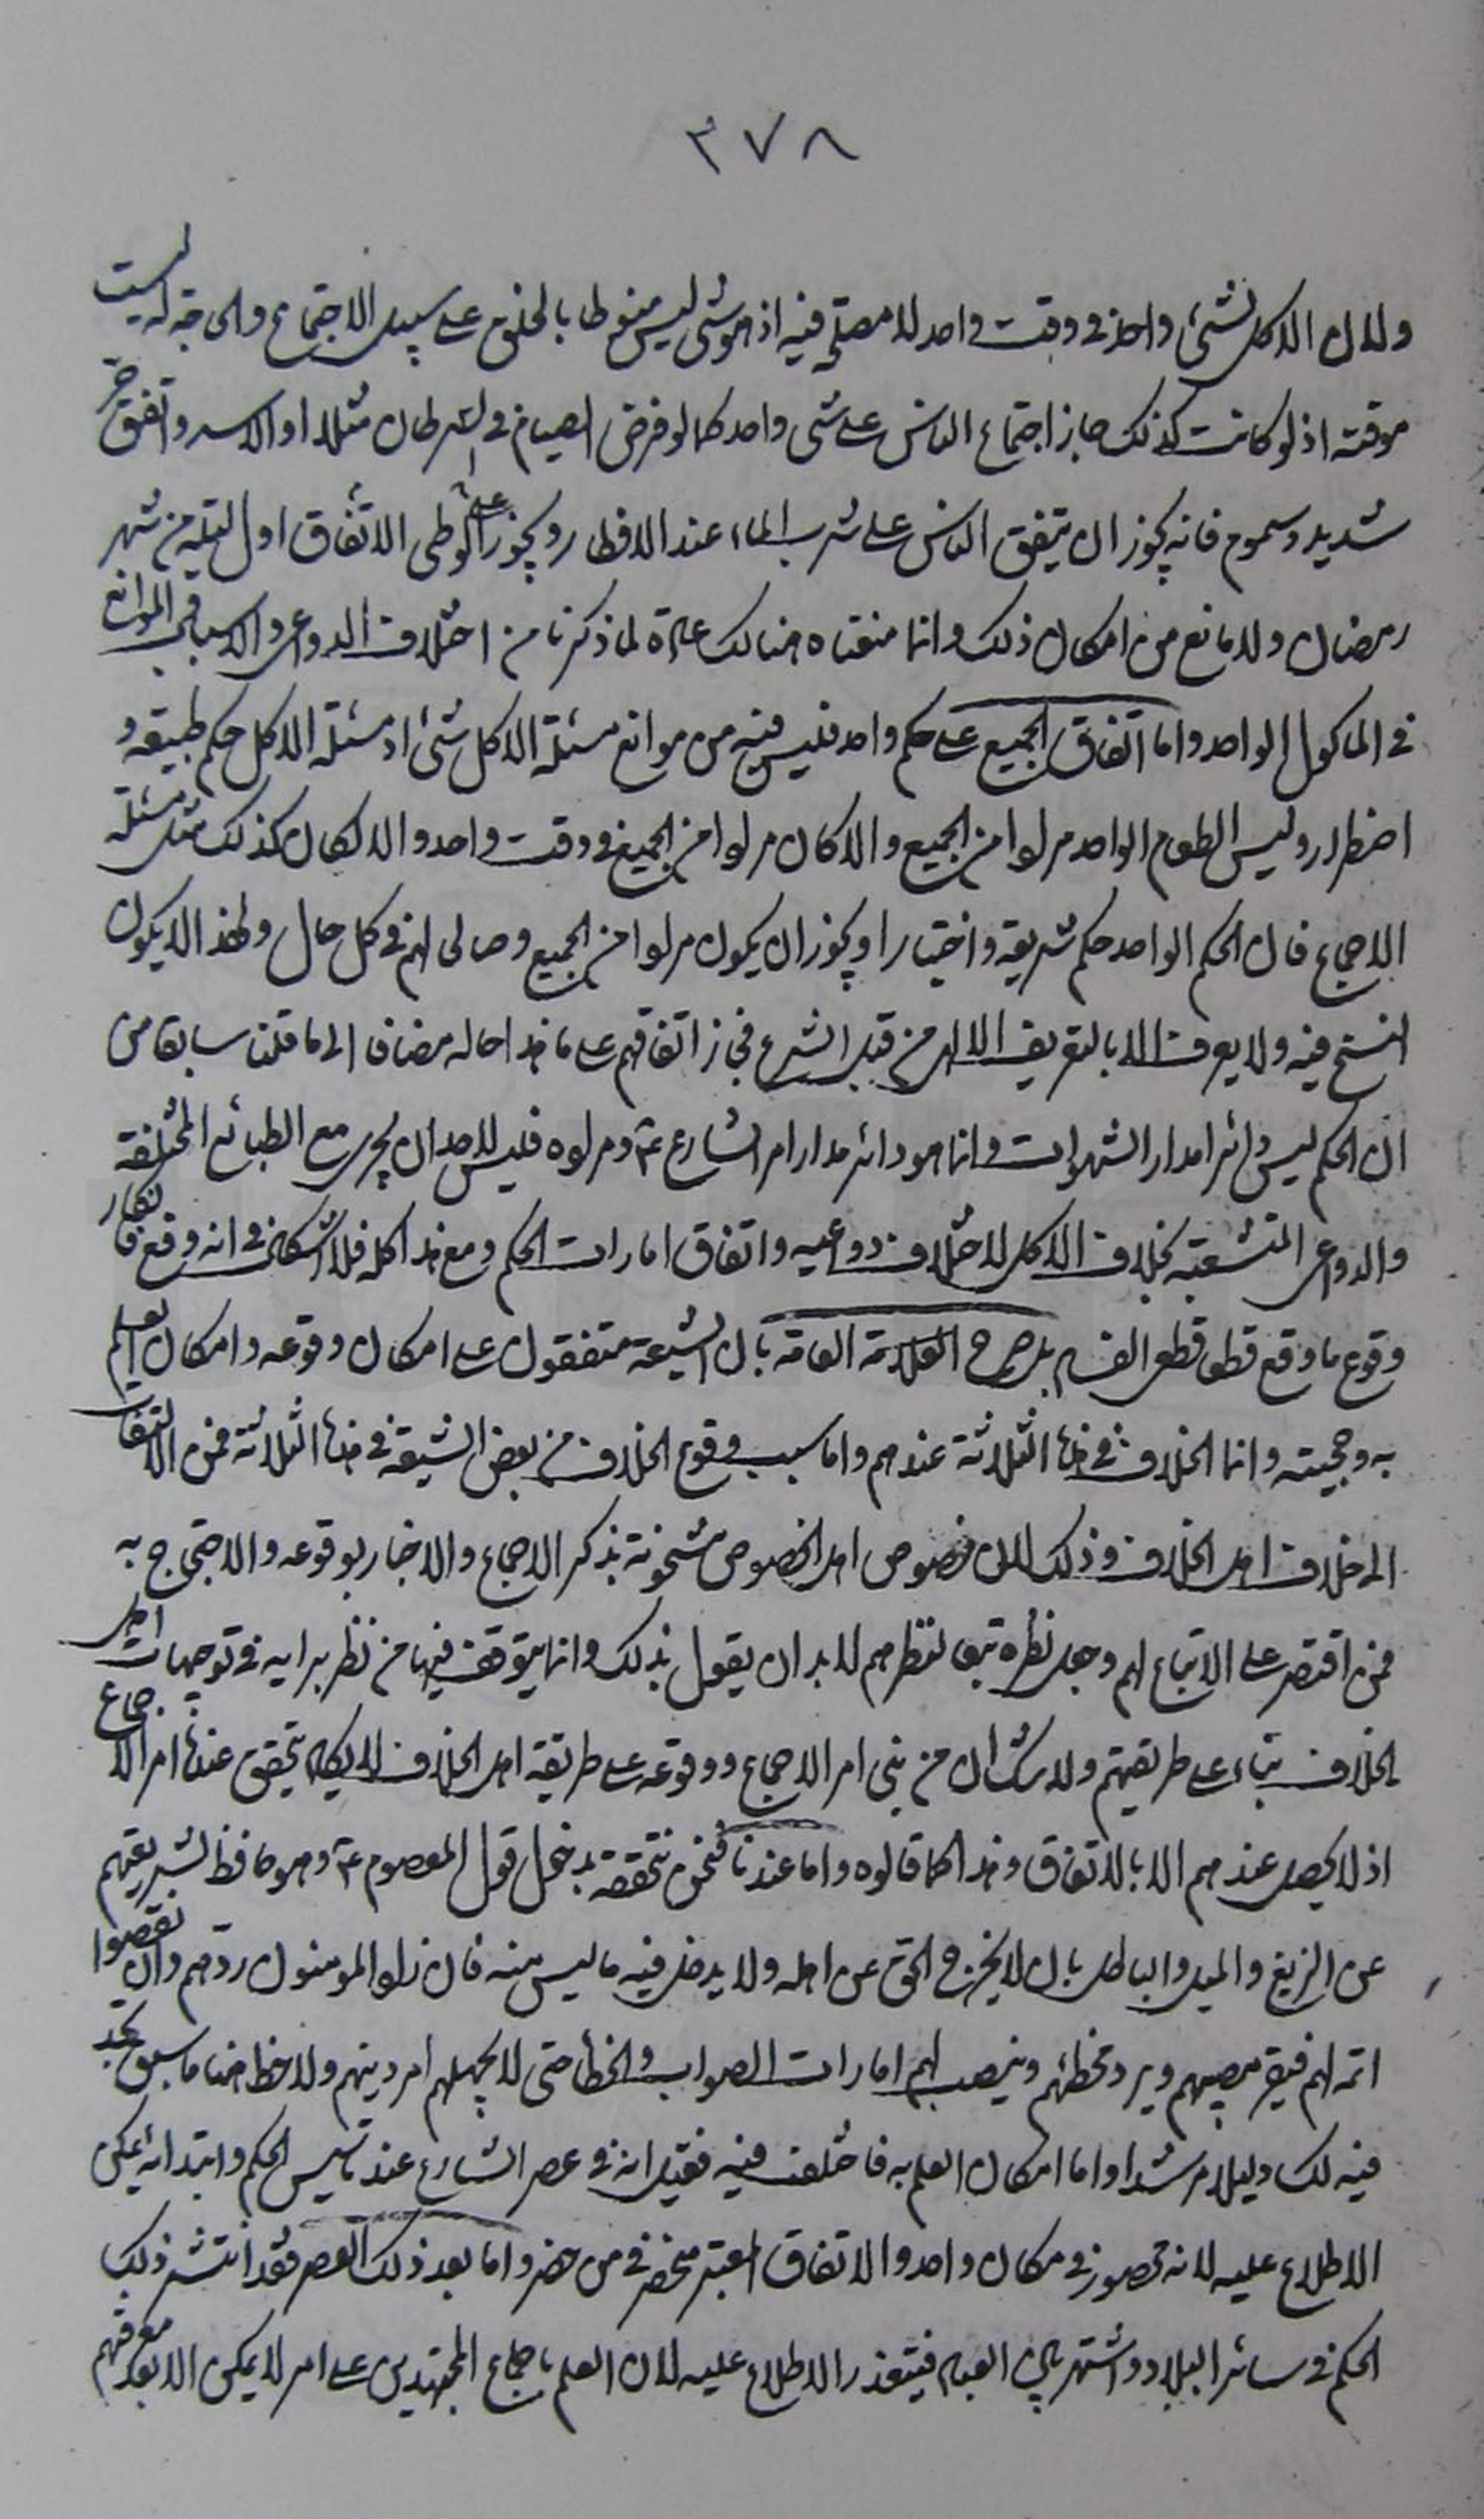 ٣٧٨
ولان الاكل لشئ واحد في وقت واحد لا مصلحة فيه اذ هو شئ ليس منوطا بالخلق على سبيل الاجتماع والحاجة له ليست
موقتة اذ لو كانت كذلك جاز اجتماع الناس على شئ واحد كما لو فرض الصيام في السرطان مثلا او الاسد واتفق حر
شديد وسموم فانه يجوز ان يتفق الناس على شرب الماء عند الافطار ويجوز على الوطى الاتفاق اول ليلة من شهر
رمضان ولا مانع من امكان ذلك وانما منعناه هنالك عادة لما ذكرنا من اختلاف الدواعي والاسباب والموانع
في الماكول الواحد واما اتفاق الجميع على حكم واحد فليس فيه من موانع مسئلة الاكل شئ اذ مسئلة الاكل حكم طبيعة و
اضطرار وليس الطعام الواحد مرادا من الجميع والا كان مرادا من الجميع في وقت واحد والا لكان كذلك مثل مسئلة
الاجماع فان الحكم الواحد حكم شريعة واختيار ويجوز ان يكون مرادا من الجميع وصالحا لهم في كل حال ولهذا لا يكون
النسخ فيه ولا يعرف الا بالتعريف الالهي من قبل الشرع فجاز اتفاقهم على ما هذا حاله مضافا الى ما قلنا سابقا من
ان الحكم ليس دائرا مدار الشهوات وانما هو دائر مدار امر الشارع ع ومراده فليس لاحد ان يجري مع الطبائع المختلفة
والدواعي المتشعبة بخلاف الاكل لاختلاف دواعيه واتفاق امارات الحكم ومع هذا كله فلا اشكال في انه وقع فانكار
وقوع ما وقع قطعا قطعي الفساد بل صرح العلامة العامة بان الشيعة متفقون على امكان وقوعه وامكان العلم
به وحجيته وانما الخلاف في هذه الثلاثة عندهم واما سبب وقوع الخلاف من بعض الشيعة في هذه الثلاثة فمن الالتفات
الى خلاف اهل الخلاف وذلك لان نصوص اهل الخصوص مشحونة بذكر الاجماع والاخبار بوقوعه والاحتجاج به
فمن اقتصر على الاتباع لهم وجعل نظره تبعا لنظرهم لابد ان يقول بذلك وانما يتوقف فيها من نظر برايه في توجيهات اهل
الخلاف بناء على طريقتهم ولا شك ان من بنى امر الاجماع ووقوعه على طريقة اهل الخلاف لا يكاد يتحقق عنده امر الاجماع
اذ لا يحصل عندهم الا بالاتفاق وهذا كما قالوه واما عندنا فنحن نتحققه بدخول قول المعصوم ع وهو حافظ لشريعتهم
عن الزيغ والميل والباطل بان لا يخرج الحق عن اهله ولا يدخل فيه ما ليس منه فان زاد المومنون ردهم وان نقصوا
اتمه لهم فيقر مصيبهم ويرد مخطئهم وينصب لهم امارات الصواب والخطأ حتى لا يجهلهم امر دينهم ولاحظ هنا ما سبق تجد
فيه لك دليلا مرشدا واما امكان العلم به فاختلف فيه فقيل انه في عصر الشارع عند تاسيس الحكم وابتدائه يمكن
الاطلاع عليه لانه محصور في مكان واحد والاتفاق المعتبر منحصر في من حضر واما بعد ذلك العصر فقد انتشر ذلك
الحكم في سائر البلاد واشتهر بين العباد فيتعذر الاطلاع عليه لان العلم باجماع المجتهدين على امر لا يمكن الا بعد معرفتهم